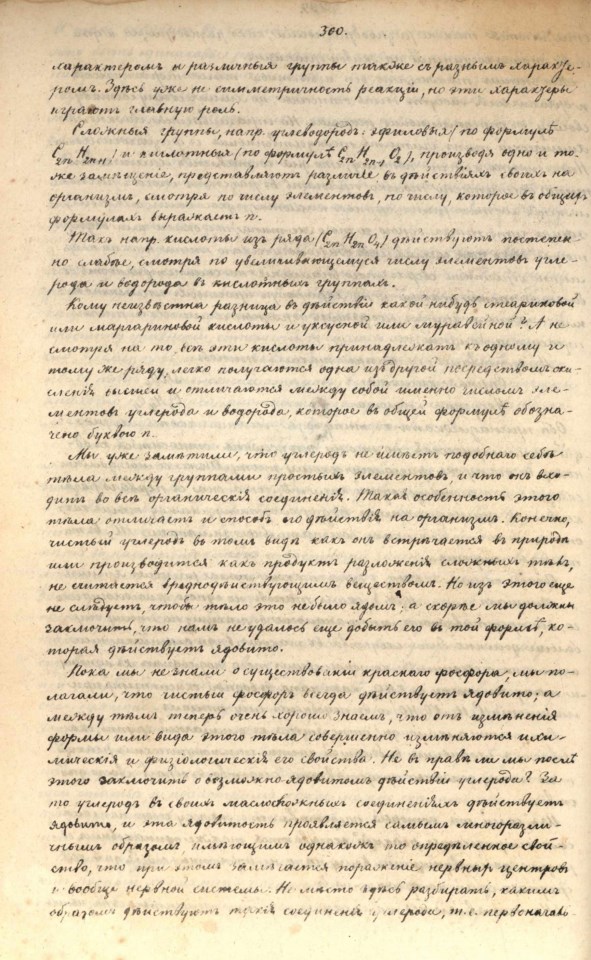 300.
характеромъ и различныя группы также съ разнымъ характе-
ромъ. Здѣсь уже не симметричность реакціи, но эти характеры
играютъ главную роль.
Сложныя группы, напр. углеводородъ: эфиловыя (по формулѣ
C2n H2n+1) и кислотныя (по формулѣ C2n H2n-1 O2), производя одно и то-
же замѣщеніе, представляютъ различіе въ дѣйствіяхъ своихъ на
организмъ, смотря по числу элементовъ, по числу, которое въ общихъ
формулахъ выражаетъ n.
Такъ напр. кислоты изъ ряда (C2n H2n O4) дѣйствуютъ постепен-
но слабѣе, смотря по увеличивающемуся числу элементовъ угле-
рода и водорода въ кислотныхъ группахъ.
Кому неизвѣстна разница въ дѣйствіи какой нибудь стеариновой
или маргариновой кислоты и уксусной или муравьиной? А не
смотря на то, всѣ эти кислоты принадлежатъ къ одному и
тому же ряду, легко получаются одна изъ другой посредствомъ оки-
сленія высшей и отличаются между собой именно числомъ эле-
ментовъ углерода и водорода, которое въ общей формулѣ обозна-
чено буквою n.
Мы уже замѣтили, что углеродъ не имѣетъ подобнаго себѣ
тѣла между группами простыхъ элементовъ, и что онъ вхо-
дитъ во всѣ органическія соединенія. Такая особенность этого
тѣла отличаетъ и способъ его дѣйствія на организмъ. Конечно,
чистый углеродъ въ томъ видѣ какъ онъ встрѣчается въ природѣ
или производится какъ продуктъ разложенія сложныхъ тѣлъ,
не считается вреднодѣйствующимъ веществомъ. Но изъ этого еще
не слѣдуетъ, чтобы тѣло это не было ядомъ; а скорѣе мы должны
заключить, что намъ не удалось еще добыть его въ той формѣ, ко-
торая дѣйствуетъ ядовито.
Пока мы не знали о существованіи краснаго фосфора, мы по-
лагали, что чистый фосфоръ всегда дѣйствуетъ ядовито; а
между тѣмъ теперь очень хорошо знаемъ, что отъ измѣненія
формы или вида этого тѣла совершенно измѣняются и хи-
мическія и физіологическія его свойства. Не въ правѣ ли мы послѣ
этого заключить о возможно ядовитомъ дѣйствіи углерода? За
то углеродъ въ своихъ малосложныхъ соединеніяхъ дѣйствуетъ
ядовито, и эта ядовитость проявляется самымъ многоразли-
чнымъ образомъ имѣющимъ однакожъ то опредѣленное свой-
ство, что при этомъ замѣчается пораженіе нервныхъ центровъ
и вообще нервной системы. Не мѣсто здѣсь разбирать, какимъ
образомъ дѣйствуютъ такія соединенія углерода, т.е. первоначаль-